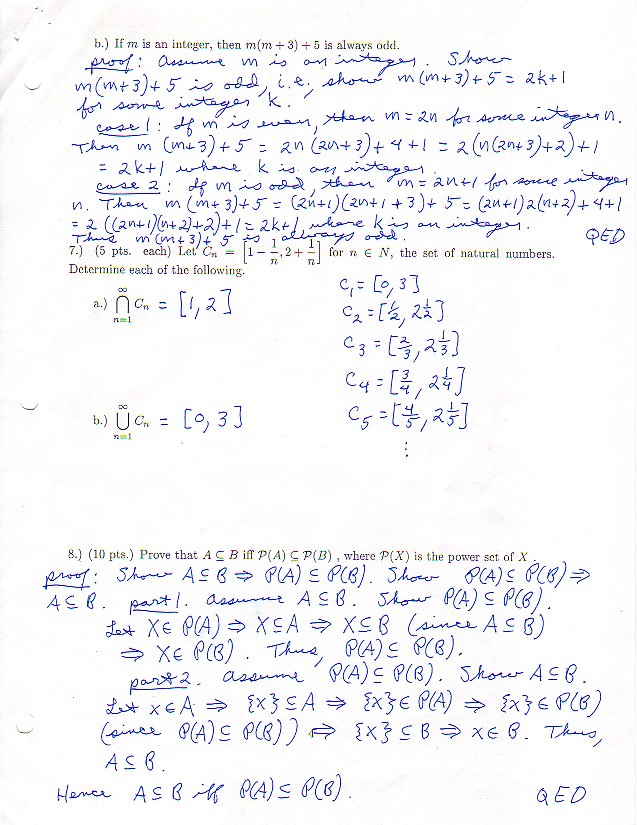 b.) If m is an integer, then m(m + 3) + 5 is always odd.
proof: Assume m is an integer. Show
m(m+3)+5 is odd, i.e., show m(m+3)+5 = 2k+1
for some integer k.
case 1: If m is even, then m = 2n for some integer n.
Then m(m+3)+5 = 2n(2n+3)+4+1 = 2(n(2n+3)+2)+1
= 2k+1 where k is an integer.
case 2: If m is odd, then m = 2n+1 for some integer
n. Then m(m+3)+5 = (2n+1)(2n+1+3)+5 = (2n+1)2(n+2)+4+1
= 2((2n+1)(n+2)+2)+1 = 2k+1 where k is an integer.
Thus m(m+3)+5 is always odd. QED
7.) (5 pts. each) Let Cₙ = [1 − 1/n, 2 + 1/n] for n ∈ N, the set of natural numbers.
Determine each of the following.
C₁ = [0, 3]
a.) ⋂ₙ₌₁^∞ Cₙ = [1, 2]
C₂ = [1/2, 2 1/2]
C₃ = [2/3, 2 1/3]
C₄ = [3/4, 2 1/4]
b.) ⋃ₙ₌₁^∞ Cₙ = [0, 3]
C₅ = [4/5, 2 1/5]
⋮
8.) (10 pts.) Prove that A ⊆ B iff P(A) ⊆ P(B) , where P(X) is the power set of X .
proof: Show A ⊆ B ⇒ P(A) ⊆ P(B). Show P(A) ⊆ P(B) ⇒
A ⊆ B. part 1. Assume A ⊆ B. Show P(A) ⊆ P(B).
Let X ∈ P(A) ⇒ X ⊆ A ⇒ X ⊆ B (since A ⊆ B)
⇒ X ∈ P(B). Thus, P(A) ⊆ P(B).
part 2. Assume P(A) ⊆ P(B). Show A ⊆ B.
Let x ∈ A ⇒ {x} ⊆ A ⇒ {x} ∈ P(A) ⇒ {x} ∈ P(B)
(since P(A) ⊆ P(B)) ⇒ {x} ⊆ B ⇒ x ∈ B. Thus,
A ⊆ B.
Hence A ⊆ B iff P(A) ⊆ P(B). QED